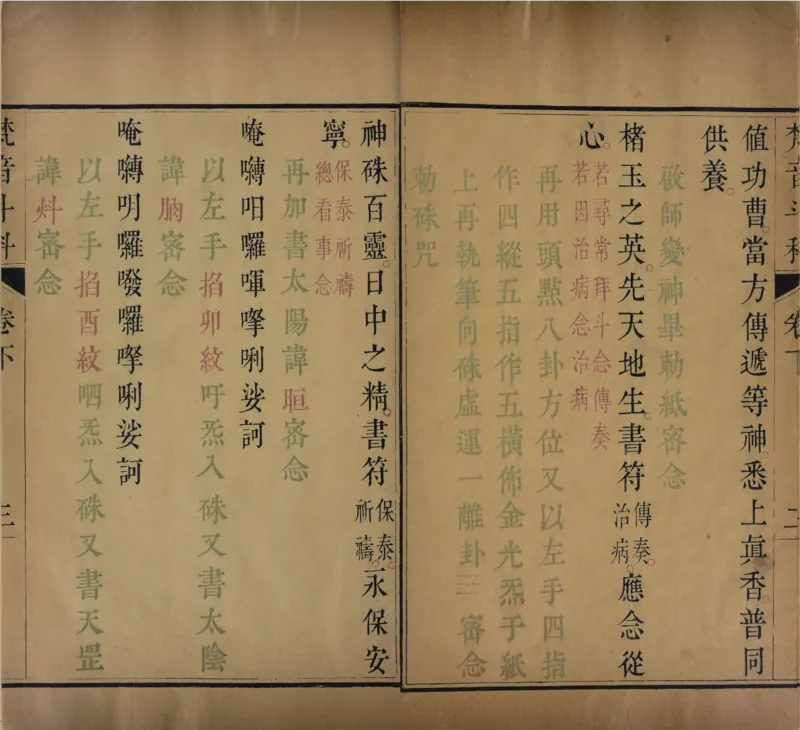 梵音斗科 卷下 二
值功曹。當方傳遞等神。悉上眞香普同
供養。
啟師變神畢勅紙密念
楮玉之英。先天地生。書符傳奏。治病。應念從
心。若尋常拜斗念傳奏若因治病念治病
再用頭點八卦方位又以左手四指
作四縱五指作五橫佈金光炁于紙
上再執筆向硃虛運一離卦☲密念
勅硃咒
神硃百靈。日中之精。書符保泰。祈禱。永保安
寧。保泰祈禱總看事念
再加書太陽諱𣆀密念
唵囀囉喗唎娑訶
以左手掐卯紋吁炁入硃又書太陰
諱密念
唵囀囉囉唎娑訶
以左手掐酉紋呬炁入硃又書天罡
諱密念
梵音斗科 卷下 三